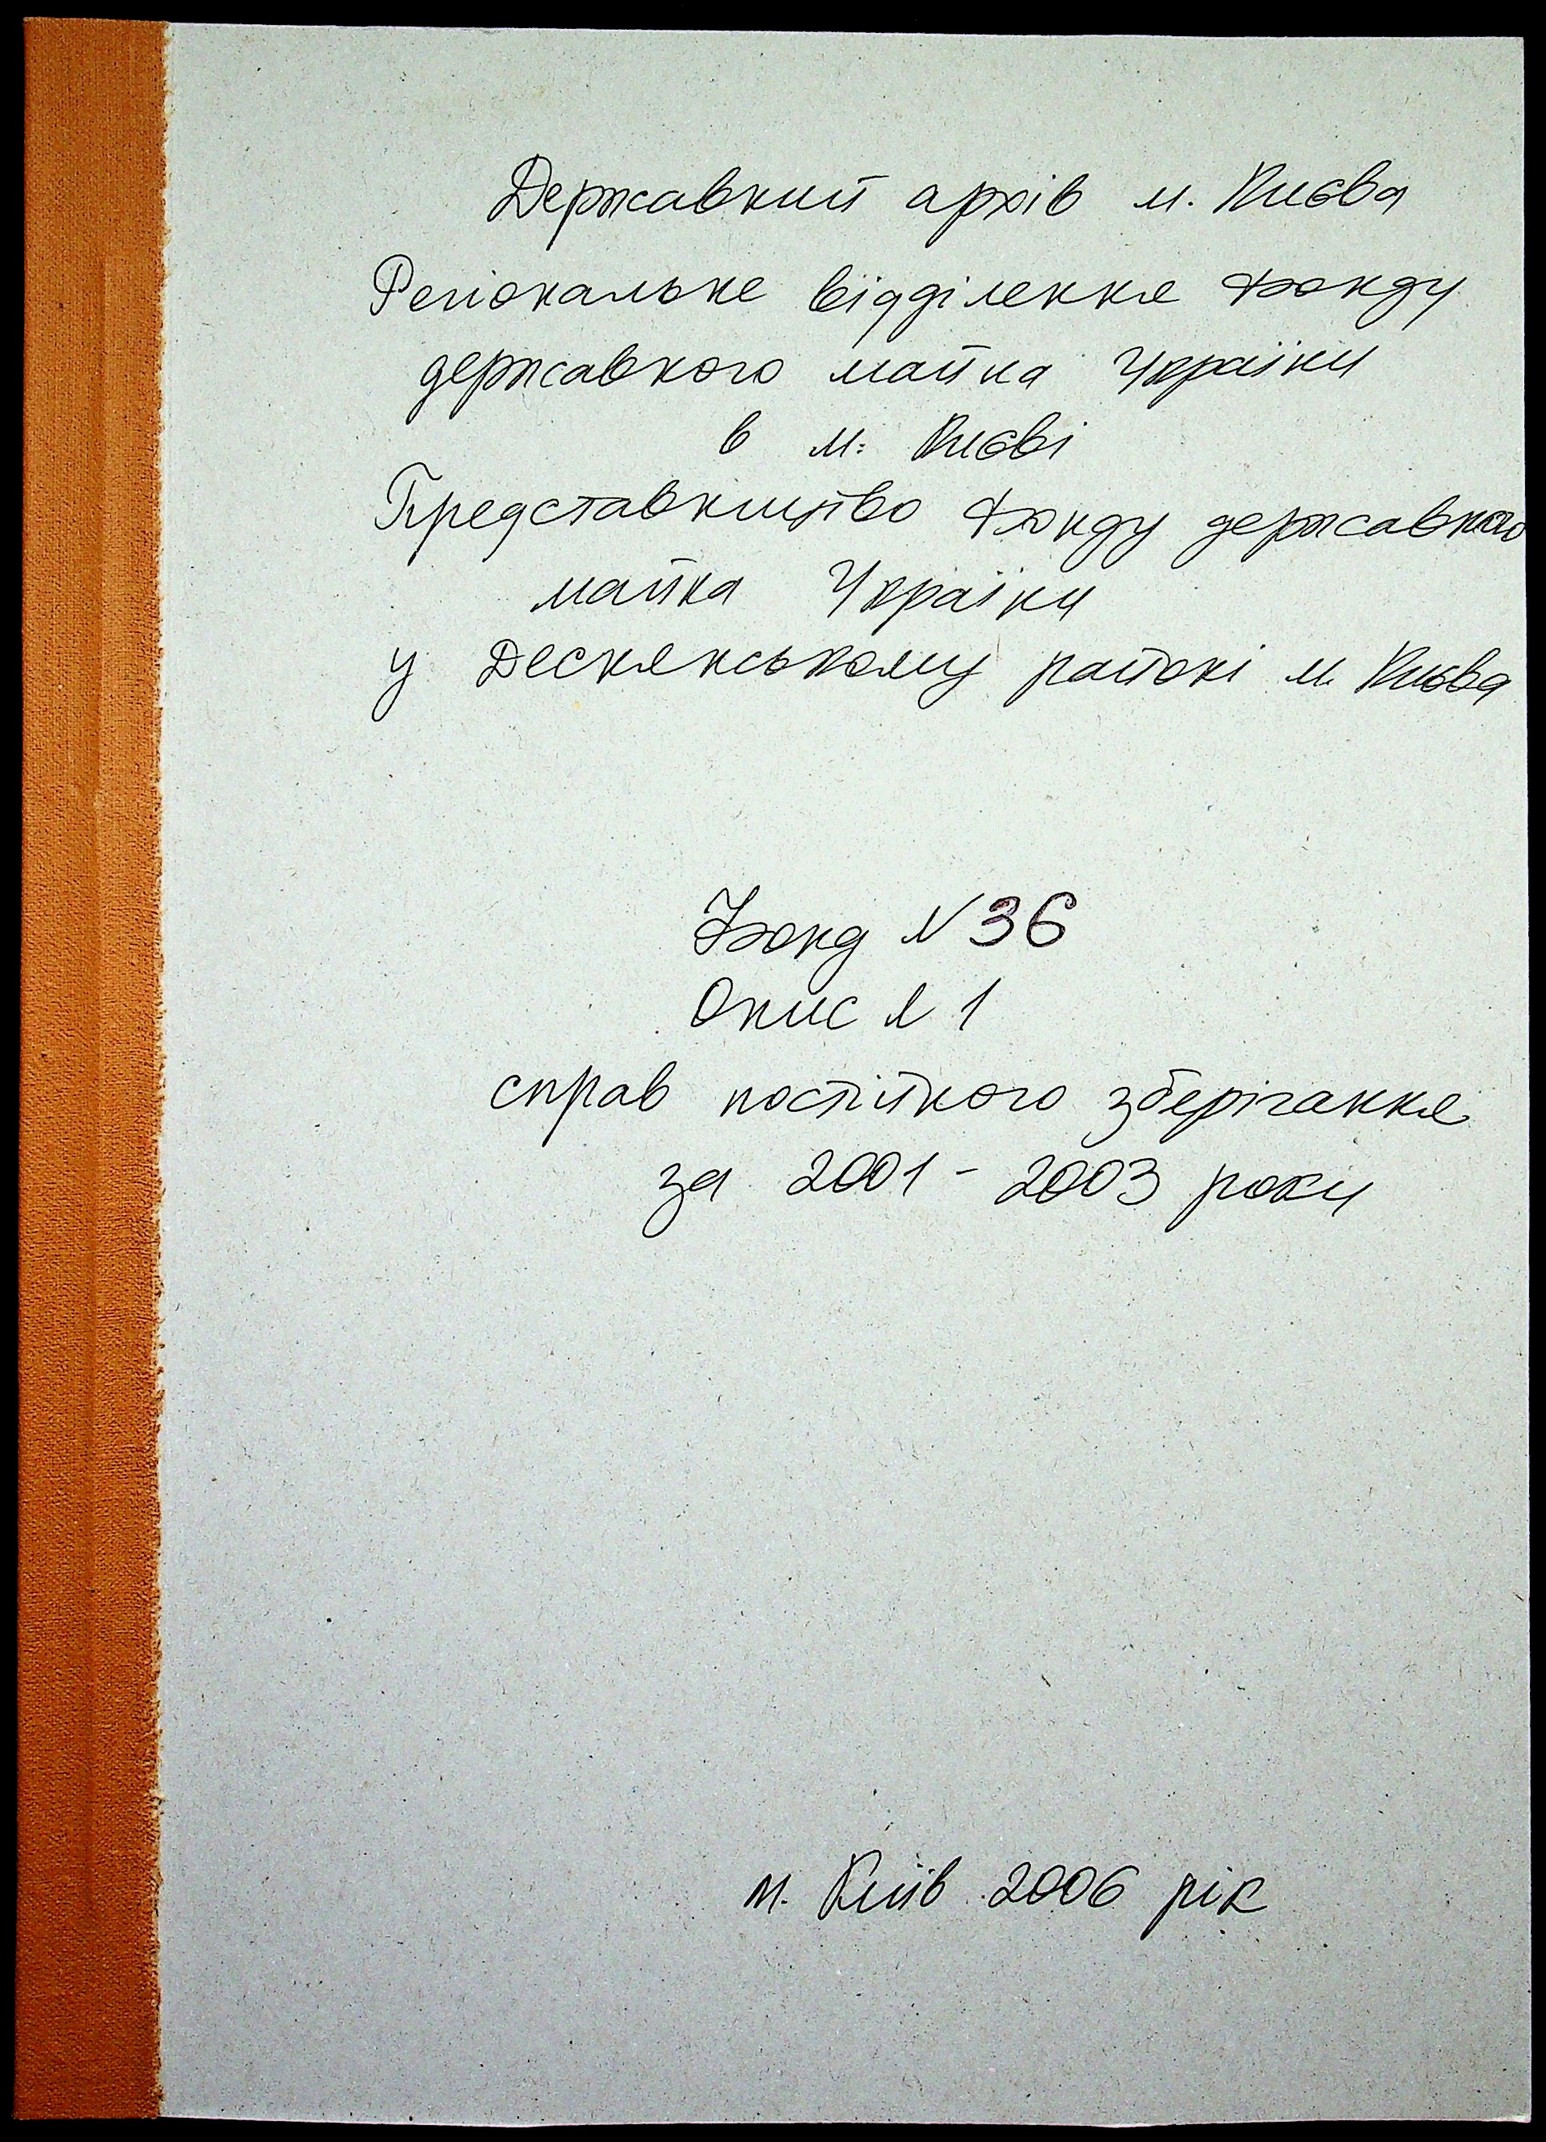 Державний архів м. Києва
Регіональне відділення Фонду
державного майна України
в м. Києві
Представництво Фонду державного
майна України
у Деснянському районі м. Києва
Фонд № 36
Опис № 1
справ постійного зберігання
за 2001 - 2003 роки
м. Київ 2006 рік